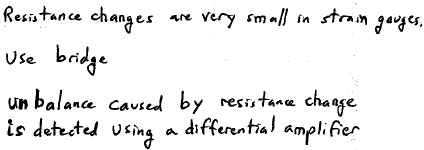 Resistance changes are very small in strain gauges.
Use bridge
unbalance caused by resistance change
is detected using a differential amplifier